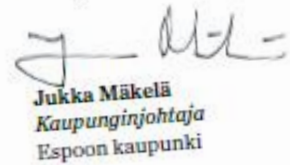 Jukka Mäkelä
Kaupunginjohtaja
Espoon kaupunki